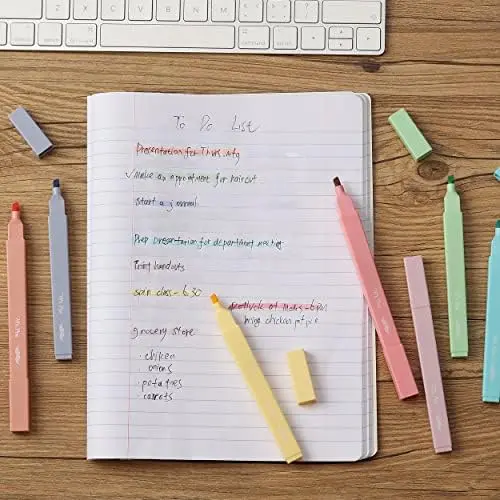 To Do List
Presentation for Thurs. mtg
✓ Make an appointment for haircut
start a journal
Prep presentation for department
Print handouts
spin class - 6:30
Potluck at - 6
bring chicken pot pie
grocery store
· chicken
· onions
· potatoes
· carrots